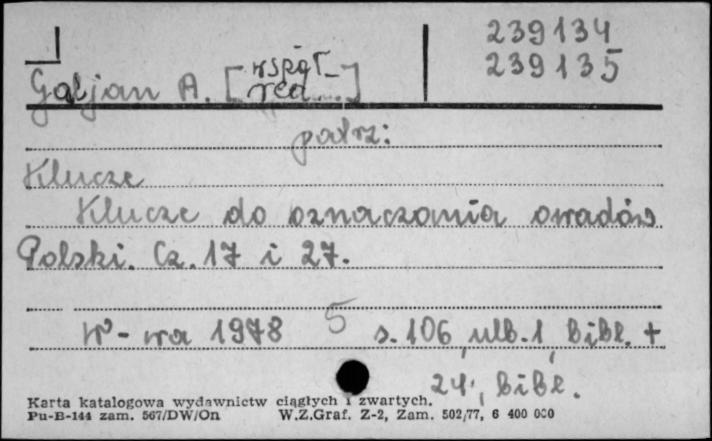 239134
239135
Galjan A. [współ-
red....]
patrz:
Klucze
Klucze do oznaczania owadów
Polski. Cz. 17 i 27.
W-wa 1978 5 s. 106, nlb. 1, bibl. +
24, bibl.
Karta katalogowa wydawnictw ciągłych i zwartych.
Pu-B-144 zam. 567/DW/On W.Z.Graf. Z-2, Zam. 502/77, 6 400 000